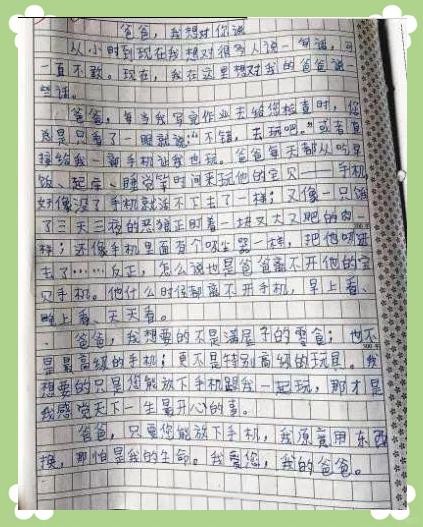 爸爸，我想对你说
从小时到现在我想对很多人说一句话，可
一直不敢。现在，我在这里想对我的爸爸说
些话。
爸爸，每当我写完作业去给您检查时，您
总是只看了一眼就说“不错，去玩吧。”或者直
接给我一部手机让我也玩。爸爸每天都从吃早
饭、起床、睡觉等时间来玩他的宝贝——手机，
好像没了手机就活不下去了一样；又像一只饿
了三天三夜的恶狼正盯着一块又大又肥的肉一
样；还像手机里面有个吸尘器一样，把他吸进
去了……反正，怎么说也是爸爸离不开他的宝
贝手机。他什么时候都离不开手机，早上看、
晚上看、天天看。
爸爸，我想要的不是满屋子的零食；也不
是最高级的手机；更不是特别高级的玩具。我
想要的只是您能放下手机跟我一起玩，那才是
我感觉天下一生最开心的事。
爸爸，只要您能放下手机，我愿意用东西
换，那怕是我的生命。我爱您，我的爸爸。